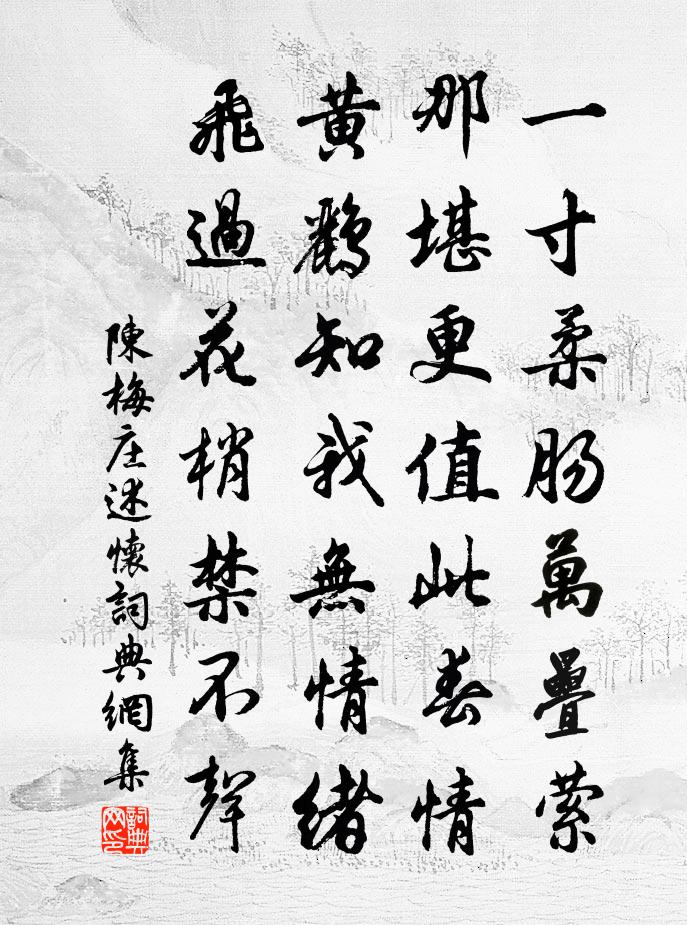 一寸柔肠萬疊萦
那堪更值此春情
黄鸝知我無情緒
飛過花梢禁不聲
陳梅庄述懷詞典網集
詞典网印